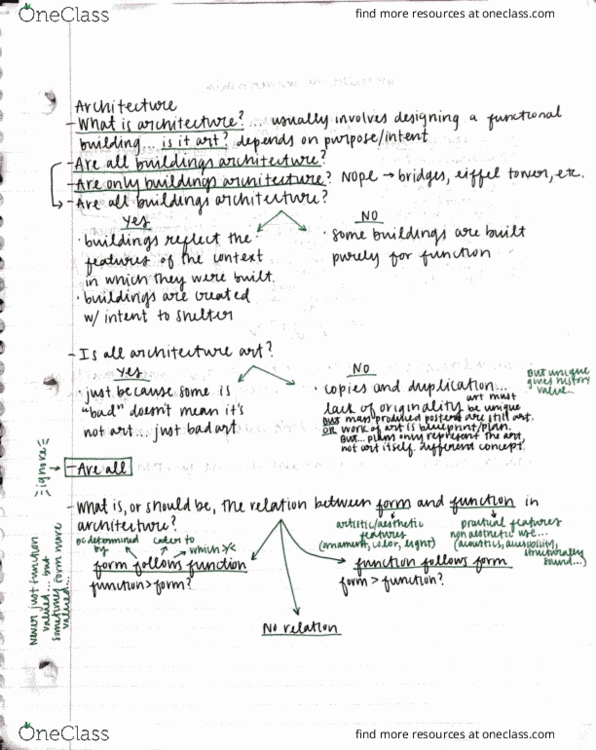 OneClass
find more resources at oneclass.com
Architecture
- What is architecture? ... usually involves designing a functional
building ... is it art? depends on purpose/intent
- Are all buildings architecture?
- Are only buildings architecture? Nope → bridges, eiffel tower, etc.
- Are all buildings architecture?
yes
NO
· buildings reflect the
features of the context
in which they were built.
· buildings are created
w/ intent to shelter
· some buildings are built
purely for function
- Is all architecture art?
yes
NO
· just because some is
"bad" doesn't mean it's
not art... just bad art
· copies and duplication...
lack of originality
art must
be unique
BUT mass produced posters are still art.
OR work of art is blueprint/plan.
But... plans only represent the art,
not art itself. different concept.
But unique
gives history
value...
ignore
→ - Are all
- What is, or should be, the relation between form and function in
architecture?
artistic/aesthetic
features
(ornament, color, light)
practical features
non aesthetic use...
(acoustics, accessibility,
structurally
sound...)
be determined
by
cater to
form follows function
function > form?
function follows form
form > function?
No relation
Never just function
valued... but
sometimes form more
valued...
OneClass
find more resources at oneclass.com